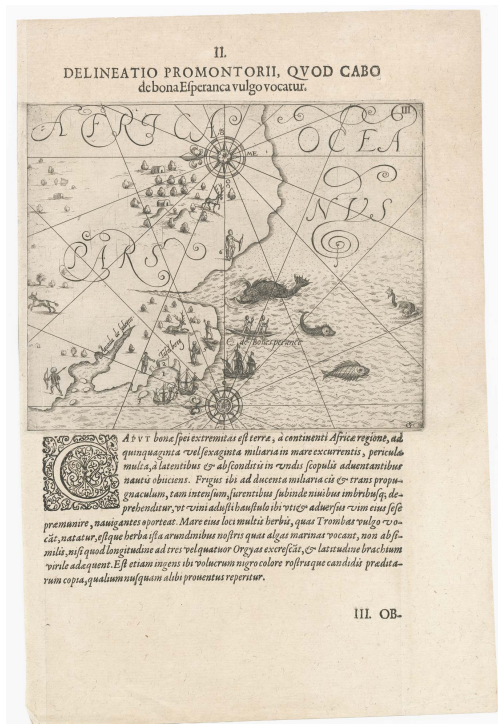 II.
DELINEATIO PROMONTORII, QVOD CABO
de bona Eſperanca vulgo vocatur.
III
AFRICA
OCEA
NVS
PARS
C. de Bona esperance
CAPVT bonæ ſpei extremitas eſt terræ, à continenti Africæ regione, ad
quinquaginta vel ſexaginta miliaria in mare excurrentis, pericula
multa, à latentibus & abſconditis in vndis ſcopulis aduentantibus
nautis obiiciens. Frigus ibi ad ducenta miliaria cis & trans propu-
gnaculum, tam intenſum, furentibus ſubinde niuibus imbribuſq́; de-
prehenditur, vt vini aduſti hauſtulo ibi vti & aduerſus vim eius ſeſe
præmunire, nauigantes oporteat. Mare eius loci multis herbis, quas Trombas vulgo vo-
cãt, natatur, eſtque herba iſta arundinibus noſtris quas algas marinas vocant, non abſi-
milis, niſi quod longitudine ad tres vel quatuor Orgyas excreſcãt, & latitudine brachium
virile adæquent. Eſt etiam ingens ibi volucrum nigro colore roſtriſque candidis prædita-
rum copia, qualium nuſquam alibi prouentus reperitur.
III. OB-